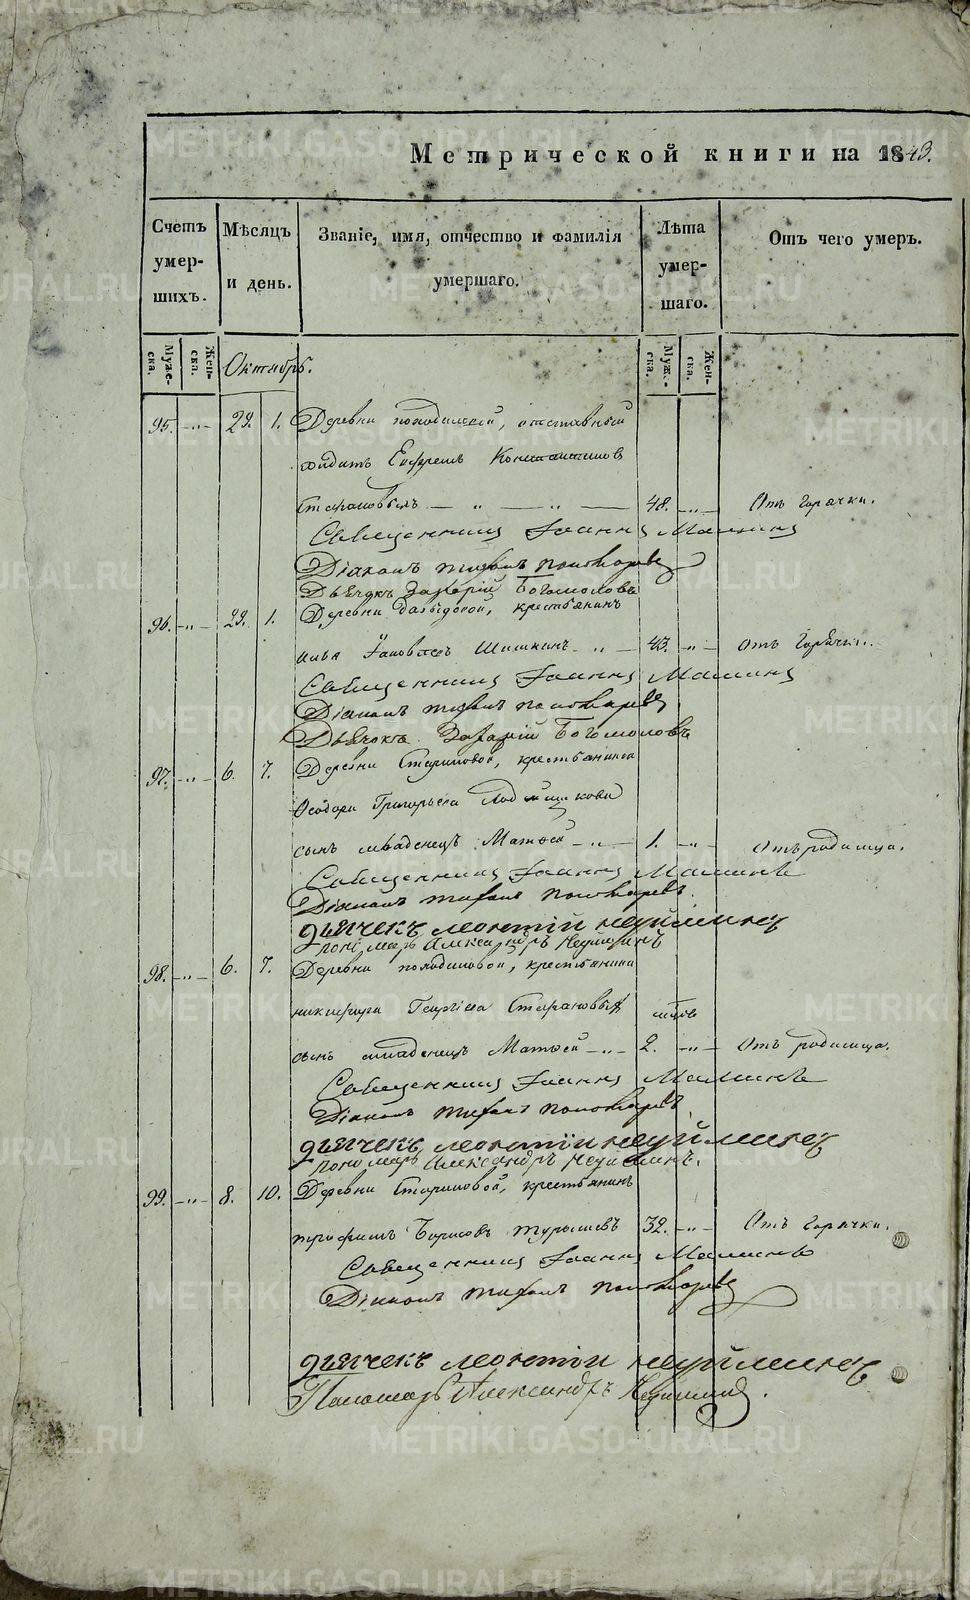 Метрической книги на 1843.
Счетъ умер-шихъ.
Мѣсяцъ и день.
Званіе, имя, отчество и фамилія умершаго.
Лѣта умер-шаго.
Отъ чего умеръ.
Муже-ска.
Жен-ска.
Октябрь.
Муже-ска.
Жен-ска.
95. — „ — 29. 1. Деревни отставный
солдатъ Ефремъ Константиновъ
— „ — „ — 48. „ — Отъ горячки.
Священникъ Іоаннъ Маминъ
Діаконъ Тихонъ Пономаревъ
Дьячокъ Захарій Богомоловъ
96. — „ — 29. 1. Деревни Давыдовой, крестьянинъ
Илья Яковлевъ Шишкинъ — „ — 43. „ — Отъ горячки.
Священникъ Іоаннъ Маминъ
Діаконъ Тихонъ Пономаревъ
Дьячокъ Захарій Богомоловъ
97. — „ — 6. 7. Деревни Стариковой, крестьянина
Ѳеодора Григорьева
сынъ младенецъ Матѳей — „ — 1. „ — Отъ родимца.
Священникъ Іоаннъ Маминъ
Діаконъ Тихонъ Пономаревъ.
Дьячекъ Леонтій Неуйминъ
Пономарь Александръ Неуйминъ
98. — „ — 6. 7. Деревни крестьянина
Никифора Георгіева
сынъ младенецъ Матѳей — „ — 2. „ — Отъ родимца.
Священникъ Іоаннъ Маминъ
Діаконъ Тихонъ Пономаревъ
Дьячекъ Леонтій Неуйминъ
Пономарь Александръ Неуйминъ.
99. — „ — 8. 10. Деревни Стариковой, крестьянинъ
Трофимъ Борисовъ 32. „ — Отъ горячки.
Священникъ Іоаннъ Маминъ
Діаконъ Тихонъ Пономаревъ
Дьячекъ Леонтій Неуйминъ
Пономарь Александръ Неуйминъ.
METRIKI.GASO-URAL.RU